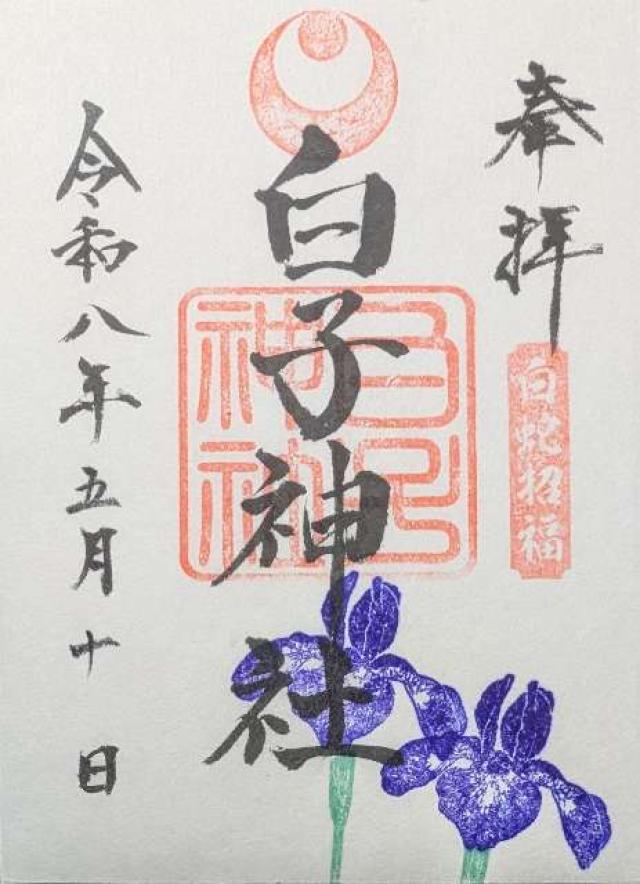 奉拝
白蛇招福
白子神社
白子神社
令和八年五月十日